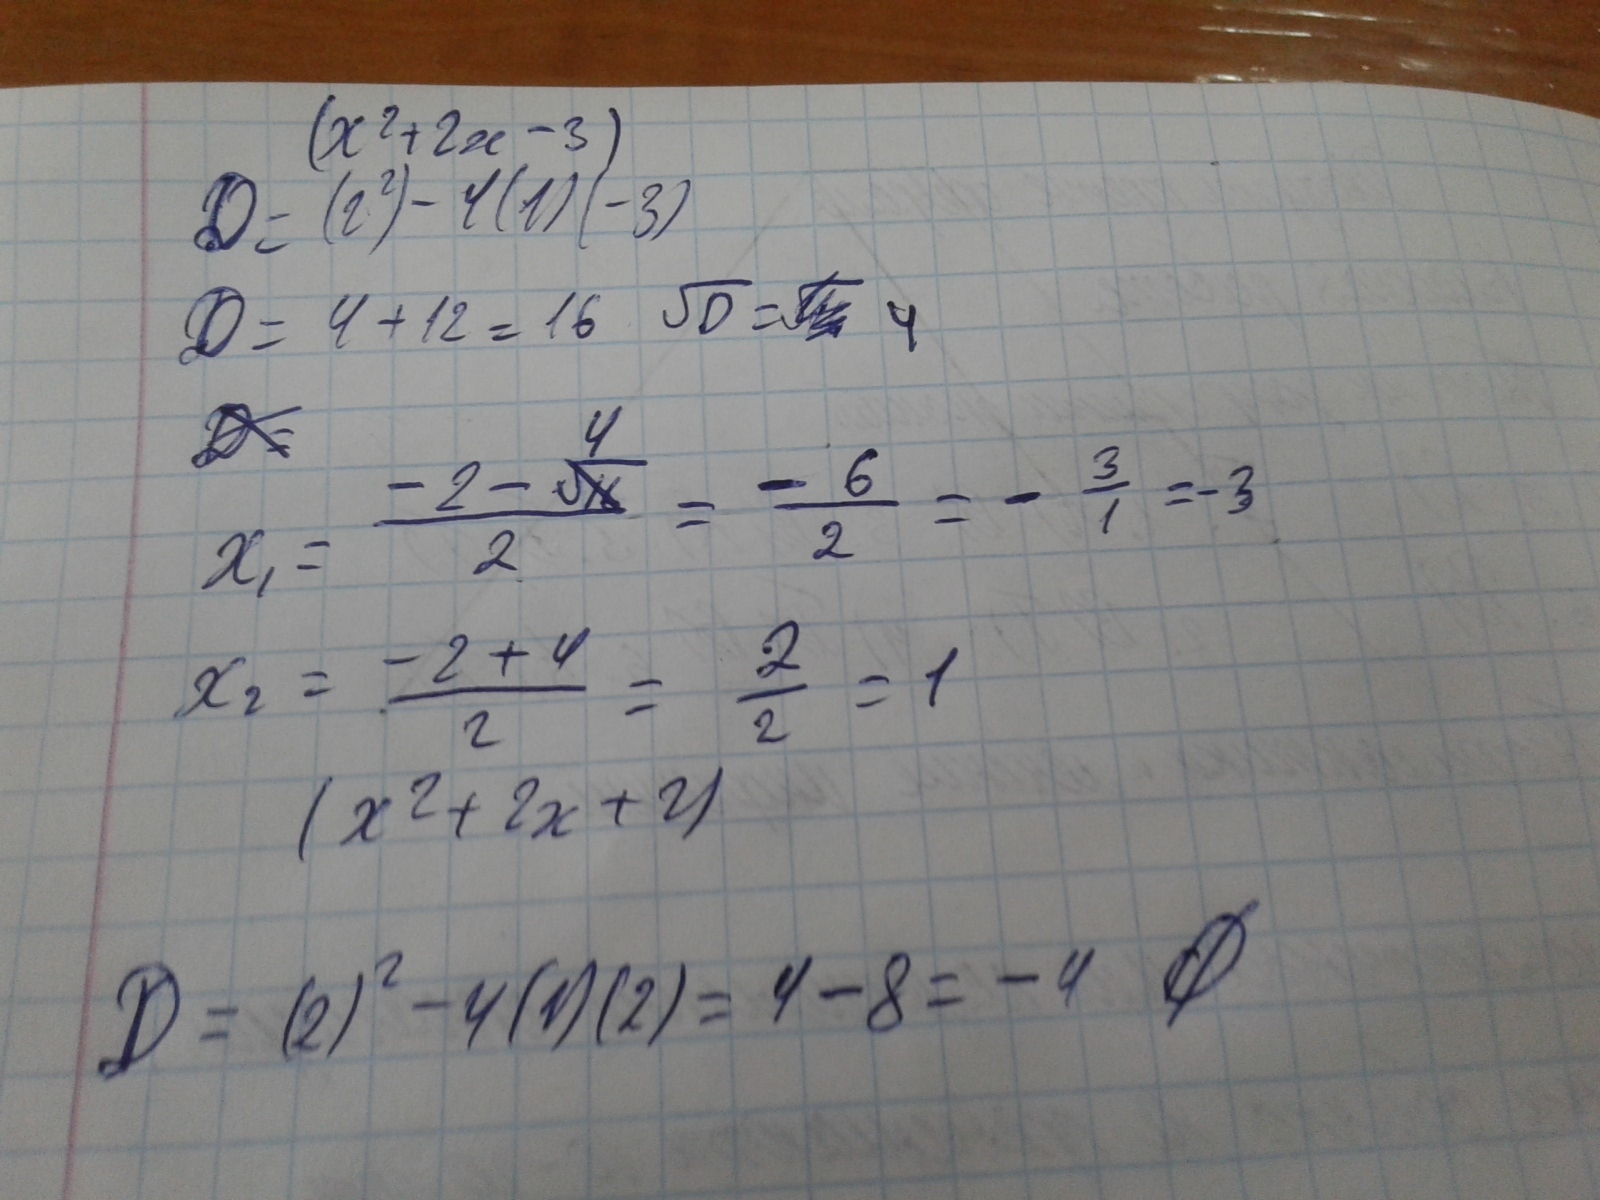 (x²+2x-3)
D= (2²)-4(1)(-3)
D= 4+12=16 √D= 4
D=
x₁= (-2-4)/2 = -6/2 = -3/1 =-3
x₂ = (-2+4)/2 = 2/2 = 1
(x²+2x+2)
D= (2)²-4(1)(2)= 4-8= -4 ∅